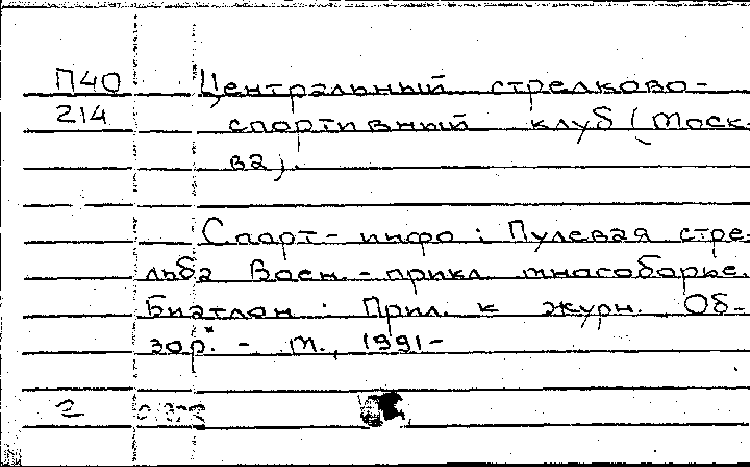 П40 Центральный стрелково-
214 спортивный клуб (Моск-
ва).
Спорт-инфо : Пулевая стре-
льба Воен.-прикл многоборье.
Биатлон : Прил. к журн. Об-
зор. - М., 1991-
2